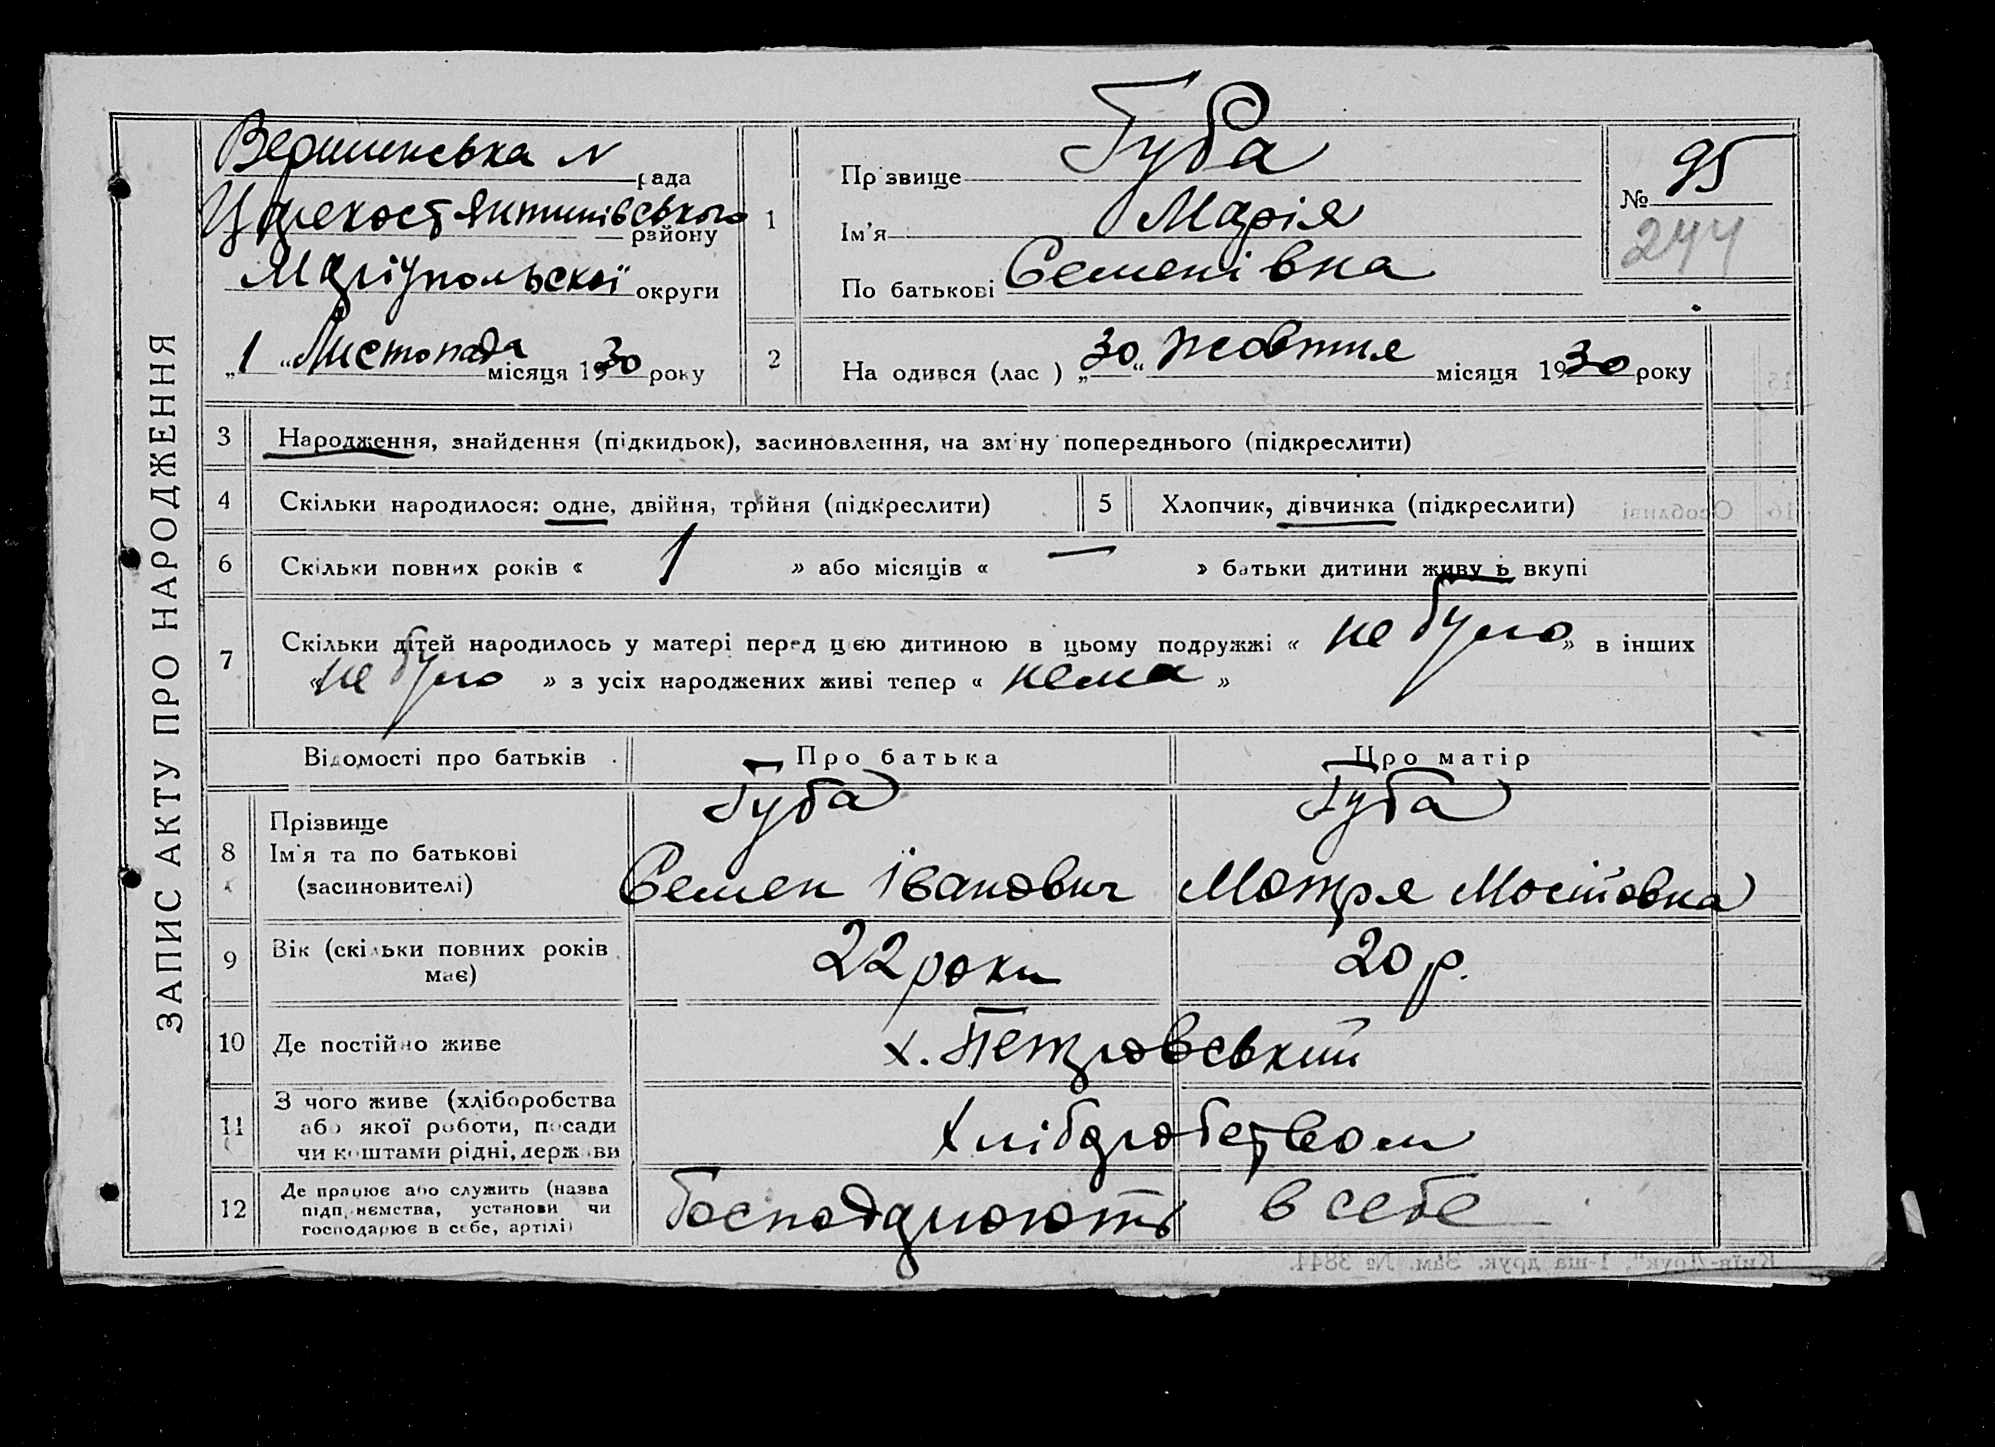 ЗАПИС АКТУ ПРО НАРОДЖЕННЯ
Вершинська рада
Царекостянтинівського району
Маріупольскої округи
„1“ Листопада місяця 1930 року
1 Прізвище Губа
Ім'я Марія
По батькові Семенівна
№ 95
244
2 На одився (лас ) „30“ жовтня місяця 1930 року
3 Народження, знайдення (підкидьок), засиновлення, на зміну попереднього (підкреслити)
4 Скільки народилося: одне, двійня, трійня (підкреслити)
5 Хлопчик, дівчинка (підкреслити)
6 Скільки повних років « 1 » або місяців « — » батьки дитини живуть вкупі
7 Скільки дітей народилось у матері перед цією дитиною в цьому подружжі « не було » в інших
« не було » з усіх народжених живі тепер « нема »
Відомості про батьків Про батька Про матір
8 Прізвище Губа Губа
Ім'я та по батькові
(засиновителі) Семен Іванович Мотря
9 Вік (скільки повних років має) 22 роки 20 р.
10 Де постійно живе х. Петровський
11 З чого живе (хліборобства
або якої роботи, посади
чи коштами рідні, держави Хліборобством
12 Де працює або служить (назва
підприємства, установи чи
господарює в себе, артілі) Господарюють в себе
Київ-Друк", 1-ша друк. Зам. № 3844.